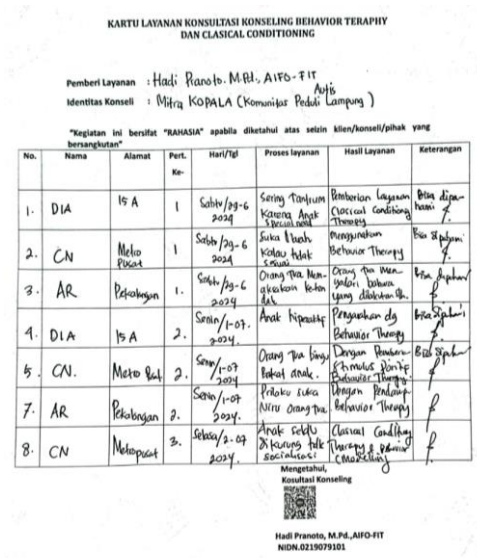 KARTU LAYANAN KONSULTASI KONSELING BEHAVIOR TERAPHY
DAN CLASICAL CONDITIONING
Pemberi Layanan : Hadi Pranoto. M.Pd., AIFO-FIT
Autis
Identitas Konseli : Mitra KOPALA (Komunitas Peduli Lampung)
"Kegiatan ini bersifat "RAHASIA" apabila diketahui atas seizin klien/konseli/pihak yang
bersangkutan"
No. Nama Alamat Pert. Ke- Hari/Tgl Proses layanan Hasil Layanan Keterangan
1. DIA 15 A 1 Sabtu/29-6 2024 Sering Tantrum Karena Anak special need Pemberian Layanan Clasical Conditioning Therapy Bisa dipahami
2. CN Metro Pusat 1 Sabtu/29-6 2024 Suka Kalau tidak sesuai Menggunakan Behavior Therapy Bisa dipahami
3. AR Pekalongan 1. Sabtu/29-6 2024 Orang Tua Orang Tua Men yang dilakukan Bisa dipahami
4. DIA 15 A 2. Senin/1-07. 2024. Anak hiperaktif Pengarahan dg Behavior Therapy Bisa dipahami
5. CN. Metro Pusat 2. Senin/1-07 2024 Orang Tua bingung Bakat anak. Dengan Stimulus Behavior Therapy. Bisa dipahami
7. AR Pekalongan 2. Senin/1-07 2024. Prilaku suka Niru Orang tua. Dengan Behavior Therapy
8. CN Metro pusat 3. Selasa/2-07 2024. Anak selalu Dikurung tdk sosialisasi Clasical Conditioning Therapy & Behavior (Modelling
Mengetahui,
Kosultasi Konseling
Hadi Pranoto, M.Pd.,AIFO-FIT
NIDN.0219079101